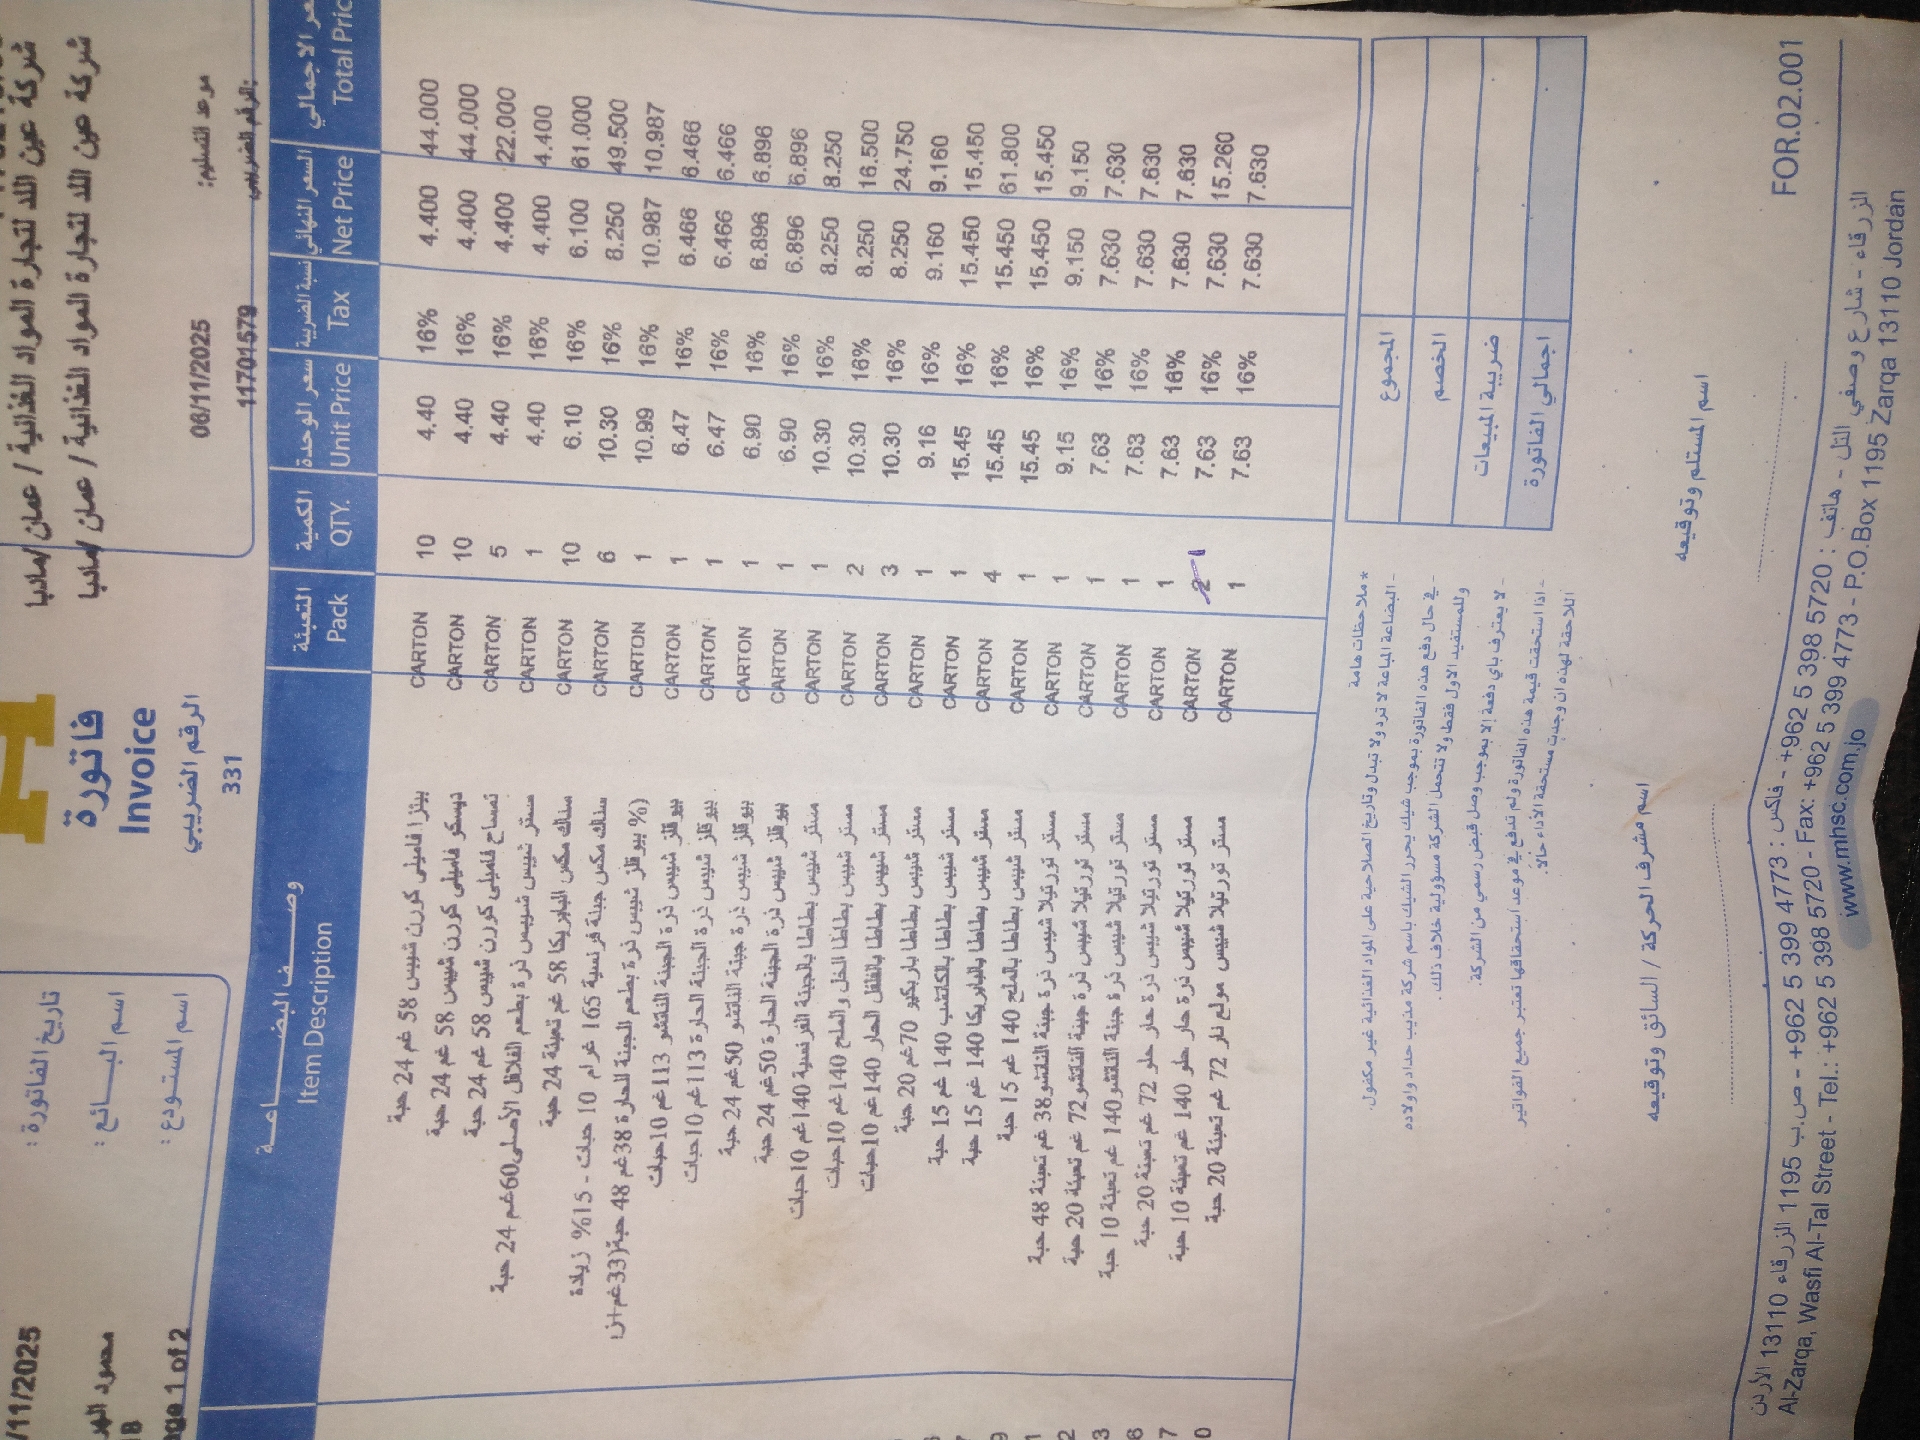 شركة عين اللد لتجارة المواد الغذائية / عمان/مادبا
شركة عين اللد لتجارة المواد الغذائية / عمان/مادبا
موعد التسليم: 06/11/2025
الرقم الضريبي: 11701579
فاتورة
Invoice
الرقم الضريبي
331
تاريخ الفاتورة : /11/2025
اسم البـــــائع : محمود
اسم المستودع :
age 1 of 2
وصـــــف البضـــــاعـــة التعبئة الكمية سعر الوحدة نسبة الضريبة السعر النهائي عر الاجمالي
Item Description Pack QTY. Unit Price Tax Net Price Total Pric
بيتزا فاميلي كورن شيبس 58 غم 24 حبة CARTON 10 4.40 16% 4.400 44.000
ديسكو فاميلي كورن شيبس 58 غم 24 حبة CARTON 10 4.40 16% 4.400 44.000
تمساح فاميلي كورن شيبس 58 غم 24 حبة CARTON 5 4.40 16% 4.400 22.000
مستر شيبس شيبس ذرة بطعم الفلافل الأصلي60غم 24 حبة CARTON 1 4.40 16% 4.400 4.400
سناك مكس البابريكا 58 غم تعبئة 24 حبة CARTON 10 6.10 16% 6.100 61.000
سناك مكس جبنة فرنسية 165 غرام 10 حبات - 15% زيادة CARTON 6 10.30 16% 8.250 49.500
%) بيوقلز شيبس ذرة بطعم الجبنة الحارة 38غم 48 حبة(33غم+ CARTON 1 10.99 16% 10.987 10.987
بيوقلز شيبس ذرة الجبنة الناتشو 113غم 10حبات CARTON 1 6.47 16% 6.466 6.466
بيوقلز شيبس ذرة الجبنة الحارة 113غم 10حبات CARTON 1 6.47 16% 6.466 6.466
بيوقلز شيبس ذرة جبنة الناتشو 50غم 24 حبة CARTON 1 6.90 16% 6.896 6.896
بيوقلز شيبس ذرة الجبنة الحارة 50غم 24 حبة CARTON 1 6.90 16% 6.896 6.896
مستر شيبس بطاطا بالجبنة الفرنسية 140غم 10حبات CARTON 1 10.30 16% 8.250 8.250
مستر شيبس بطاطا الخل والملح 140غم 10حبات CARTON 2 10.30 16% 8.250 16.500
مستر شيبس بطاطا بالفلفل الحار 140غم 10حبات CARTON 3 10.30 16% 8.250 24.750
مستر شيبس بطاطا باربكيو 70غم 20 حبة CARTON 1 9.16 16% 9.160 9.160
مستر شيبس بطاطا بالكاتشب 140 غم 15 حبة CARTON 1 15.45 16% 15.450 15.450
مستر شيبس بطاطا بالبابريكا 140 غم 15 حبة CARTON 4 15.45 16% 15.450 61.800
مستر شيبس بطاطا بالملح 140 غم 15 حبة CARTON 1 15.45 16% 15.450 15.450
مستر تورتيلا شيبس ذرة جبنة الناتشو38 غم تعبئة 48 حبة CARTON 1 9.15 16% 9.150 9.150
مستر تورتيلا شيبس ذرة جبنة الناتشو72 غم تعبئة 20 حبة CARTON 1 7.63 16% 7.630 7.630
مستر تورتيلا شيبس ذرة جبنة الناتشو140 غم تعبئة 10 حبة CARTON 1 7.63 16% 7.630 7.630
مستر تورتيلا شيبس ذرة حار حلو 72 غم تعبئة 20 حبة CARTON 1 7.63 16% 7.630 7.630
مستر تورتيلا شيبس ذرة حار حلو 140 غم تعبئة 10 حبة CARTON 2 1 7.63 16% 7.630 15.260
مستر تورتيلا شيبس مولع نار 72 غم تعبئة 20 حبة CARTON 1 7.63 16% 7.630 7.630
المجموع
الخصم
ضريبة المبيعات
اجمالي الفاتورة
* ملاحظات هامة
- البضاعة المباعة لا ترد ولا تبدل وتاريخ الصلاحية على المواد الغذائية غير مكفول.
- في حال دفع هذه الفاتورة بموجب شيك يحرر الشيك باسم شركة مذيب حداد واولاده
وللمستفيد الاول فقط ولا تتحمل الشركة مسؤولية خلاف ذلك.
- لا يعترف باي دفعة إلا بموجب وصل قبض رسمي من الشركة.
- اذا استحقت قيمة هذه الفاتورة ولم تدفع في موعد استحقاقها تعتبر جميع الفواتير
اللاحقة لهذه ان وجدت مستحقة الأداء حالا.
اسم المستلم وتوقيعه
اسم مشرف الحركة / السائق وتوقيعه
FOR.02.001
الزرقاء - شارع وصفي التل - هاتف : 5720 398 5 962+ - فاكس : 4773 399 5 962+ - ص.ب 1195 الزرقاء 13110 الأردن
Al-Zarqa, Wasfi Al-Tal Street - Tel.: +962 5 398 5720 - Fax: +962 5 399 4773 - P.O.Box 1195 Zarqa 13110 Jordan
www.mhsc.com.jo